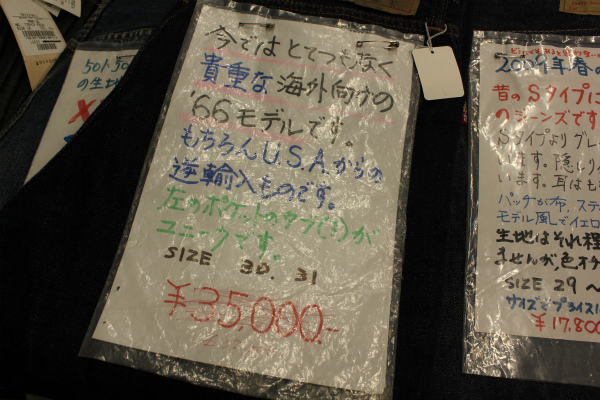 今ではとてつもなく
貴重な海外向けの
'66モデルです。
もちろんU.S.A.からの
逆輸入ものです。
左のポケットのタブ(!)が
ユニークです。
SIZE 30. 31
¥35,000.-
501-50
の生地
2009年春の
昔のSタイプに
のジーンズです
Sタイプより
ます。隠しリ
います。耳はも
パッチが布、ステ
モデル風でイエロ
生地はそれ程
ませんが、色オチ
SIZE 29〜
サイズとプライスは
¥17,800